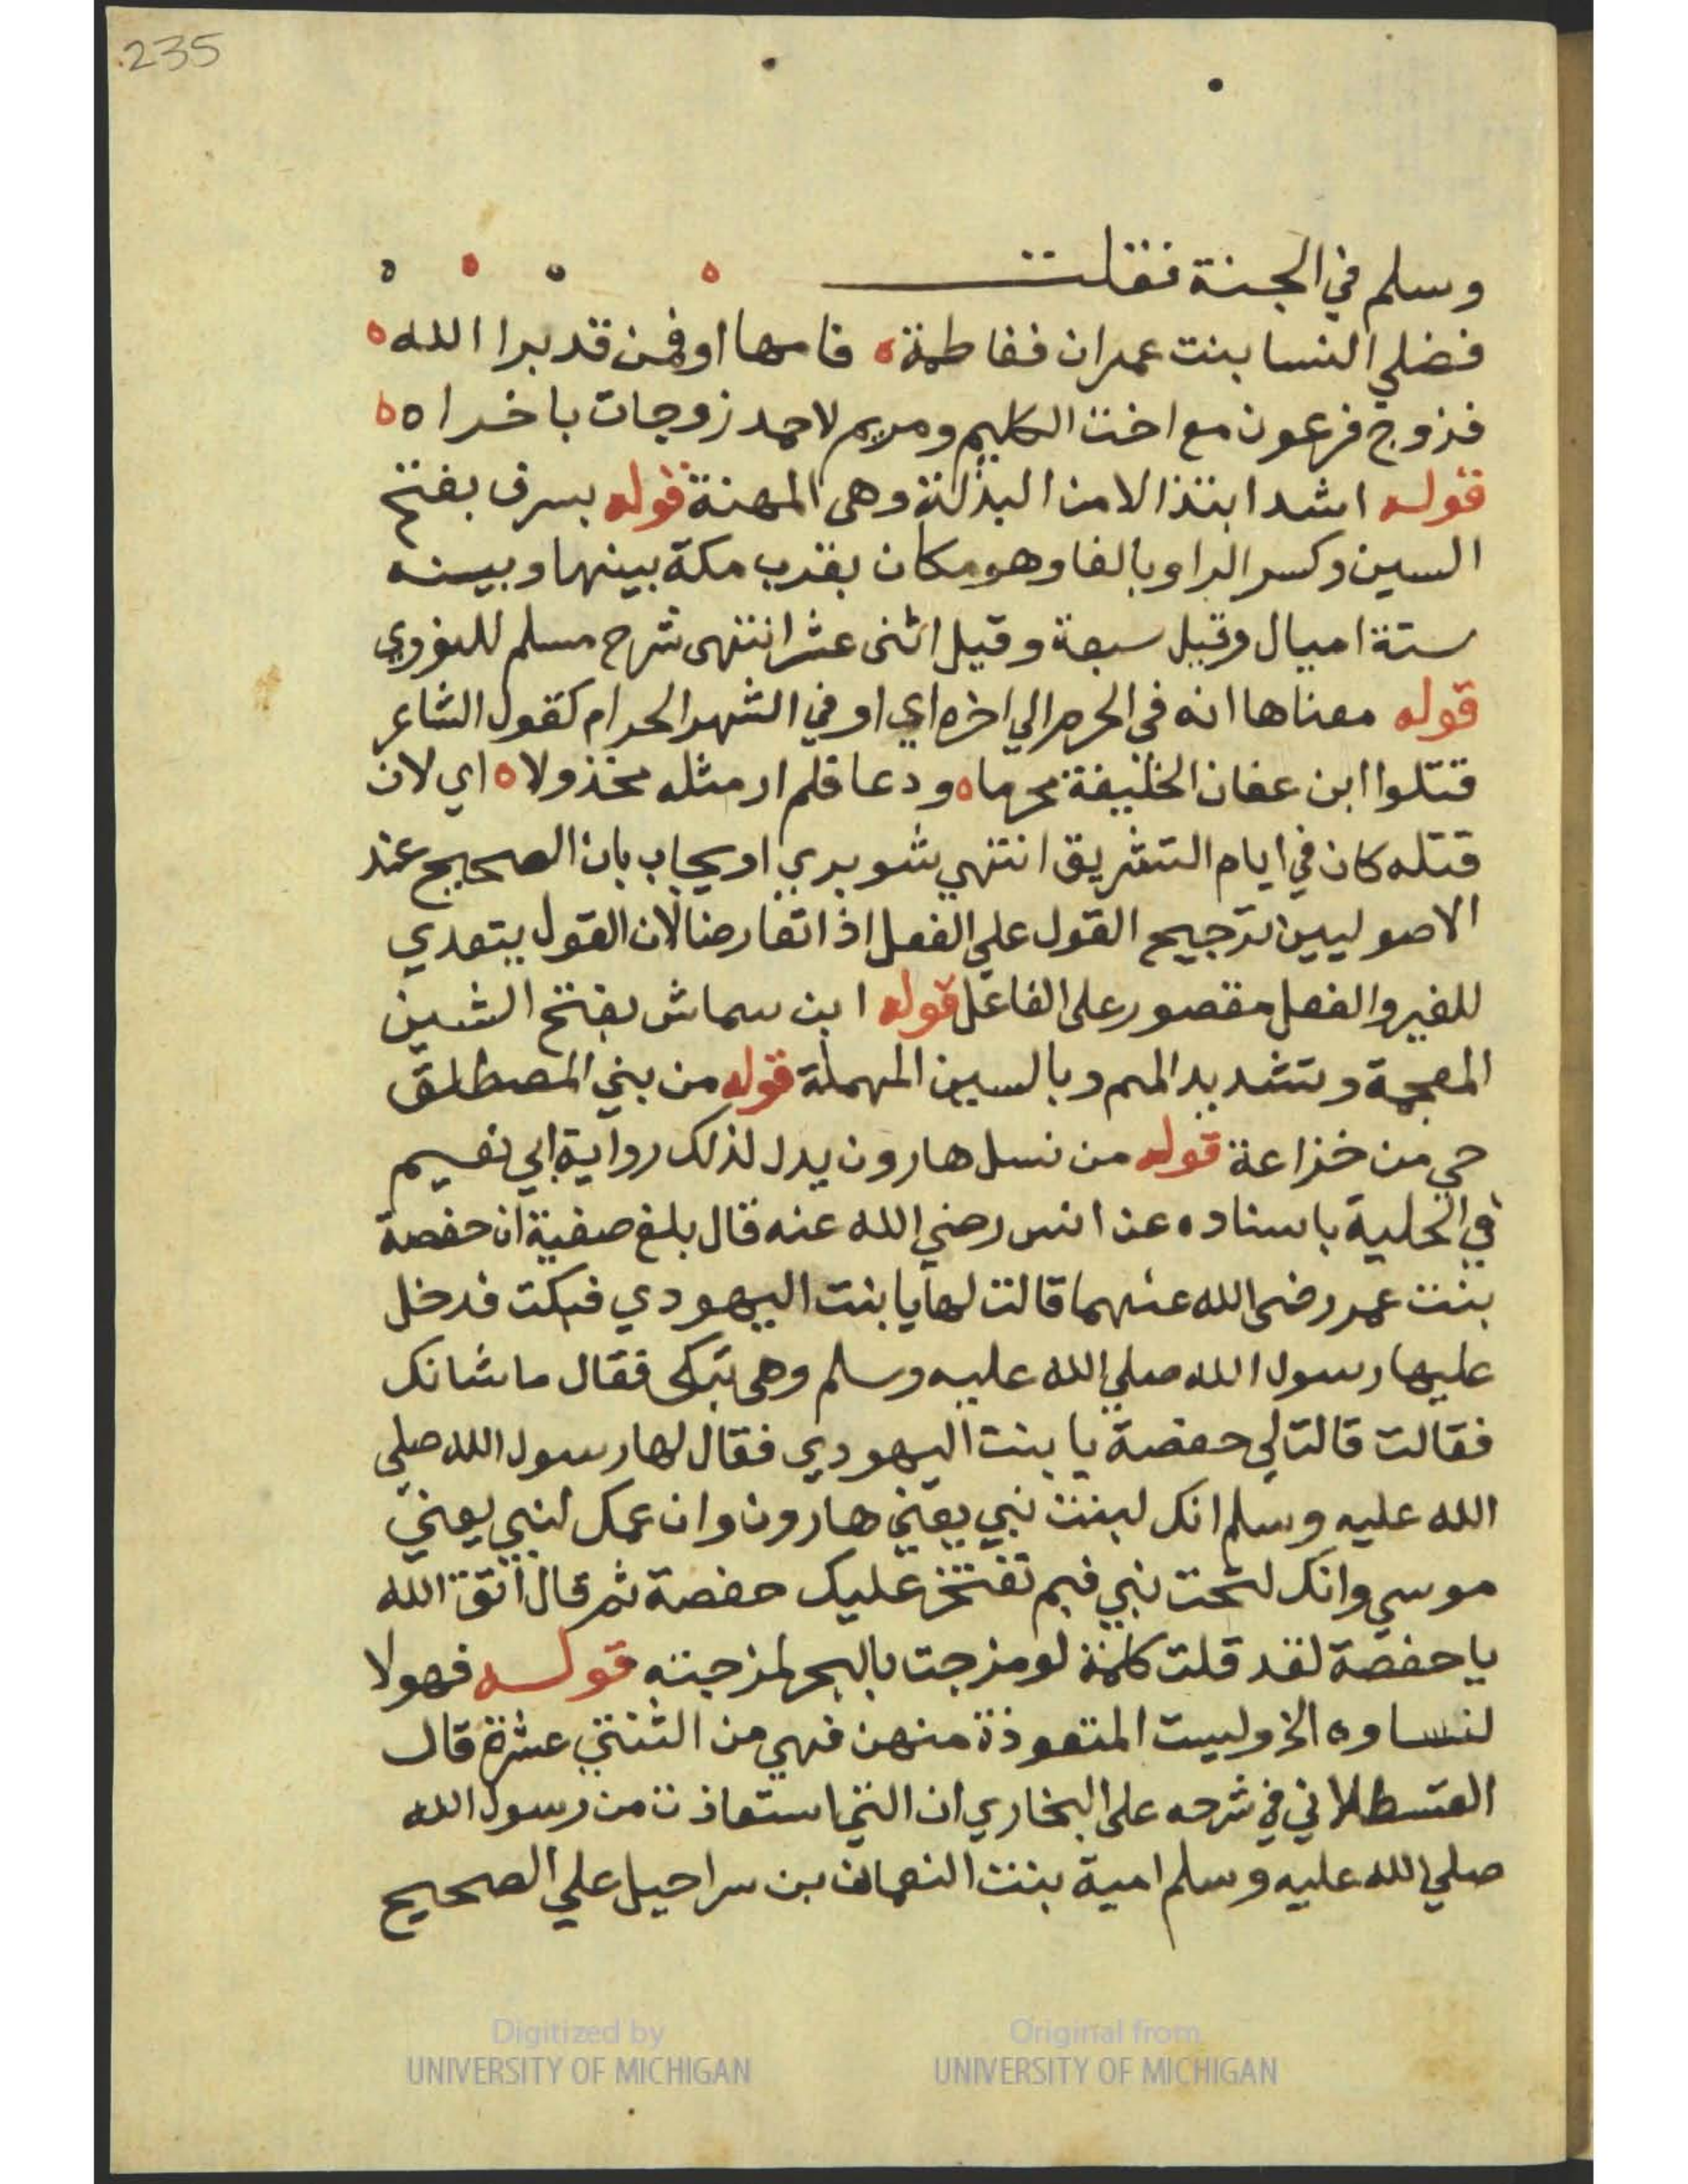 235
وسلم في الجنة فقلت
فضلي النسا بنت عمران ففاطمة ه فامها او فمن قد برا الله ه
فزوج فرعون مع اخت الكليم ومريم لاحمد زوجات باخراه ه
قوله اشد ابتذالا من البذلة وهي المهنة قوله بسرف بفتح
السين وكسر الرا وبالفا وهو مكان بقرب مكة بينها وبينه
ستة اميال وقيل سبعة وقيل اثنى عشر انتهى شرح مسلم للنووي
قوله معناها انه في الحرم الي اخره اي او في الشهر الحرام كقول الشاعر
قتلوا ابن عفان الخليفة محرما ه ودعا فلم ار مثله مخذولا ه اي لان
قتله كان في ايام التشريق انتهي شوبري او يجاب بان الصحيح عند
الاصوليين ترجيح القول علي الفعل اذا تعارضا لان القول يتعدي
للغير والفعل مقصور على الفاعل قوله ابن سماش بفتح الشين
المعجمة وتشديد الميم وبالسين المهملة قوله من بني المصطلق
حي من خزاعة قوله من نسل هارون يدل لذلك رواية ابي نعيم
في الحلية باسناده عن انس رضي الله عنه قال بلغ صفية ان حفصة
بنت عمر رضي الله عنهما قالت لها يا بنت اليهودي فبكت فدخل
عليها رسول الله صلي الله عليه وسلم وهي تبكى فقال ما شانك
فقالت قالت لي حفصة يا بنت اليهودي فقال لها رسول الله صلي
الله عليه وسلم انك لبنت نبي يعني هارون وان عمك لنبي يعني
موسي وانك لتحت نبي فبم تفتخر عليك حفصة ثم قال اتق الله
يا حفصة لقد قلت كلمة لو مزجت بالبحر لمزجته قوله فهولا
لنساوه الخ وليست المتعوذة منهن فهي من الثنتي عشرة قال
القسطلاني في شرحه على البخاري ان التي استعاذت من رسول الله
صلي الله عليه وسلم امية بنت النعمان بن سراحيل علي الصحيح
Digitized by
UNIVERSITY OF MICHIGAN
Original from
UNIVERSITY OF MICHIGAN